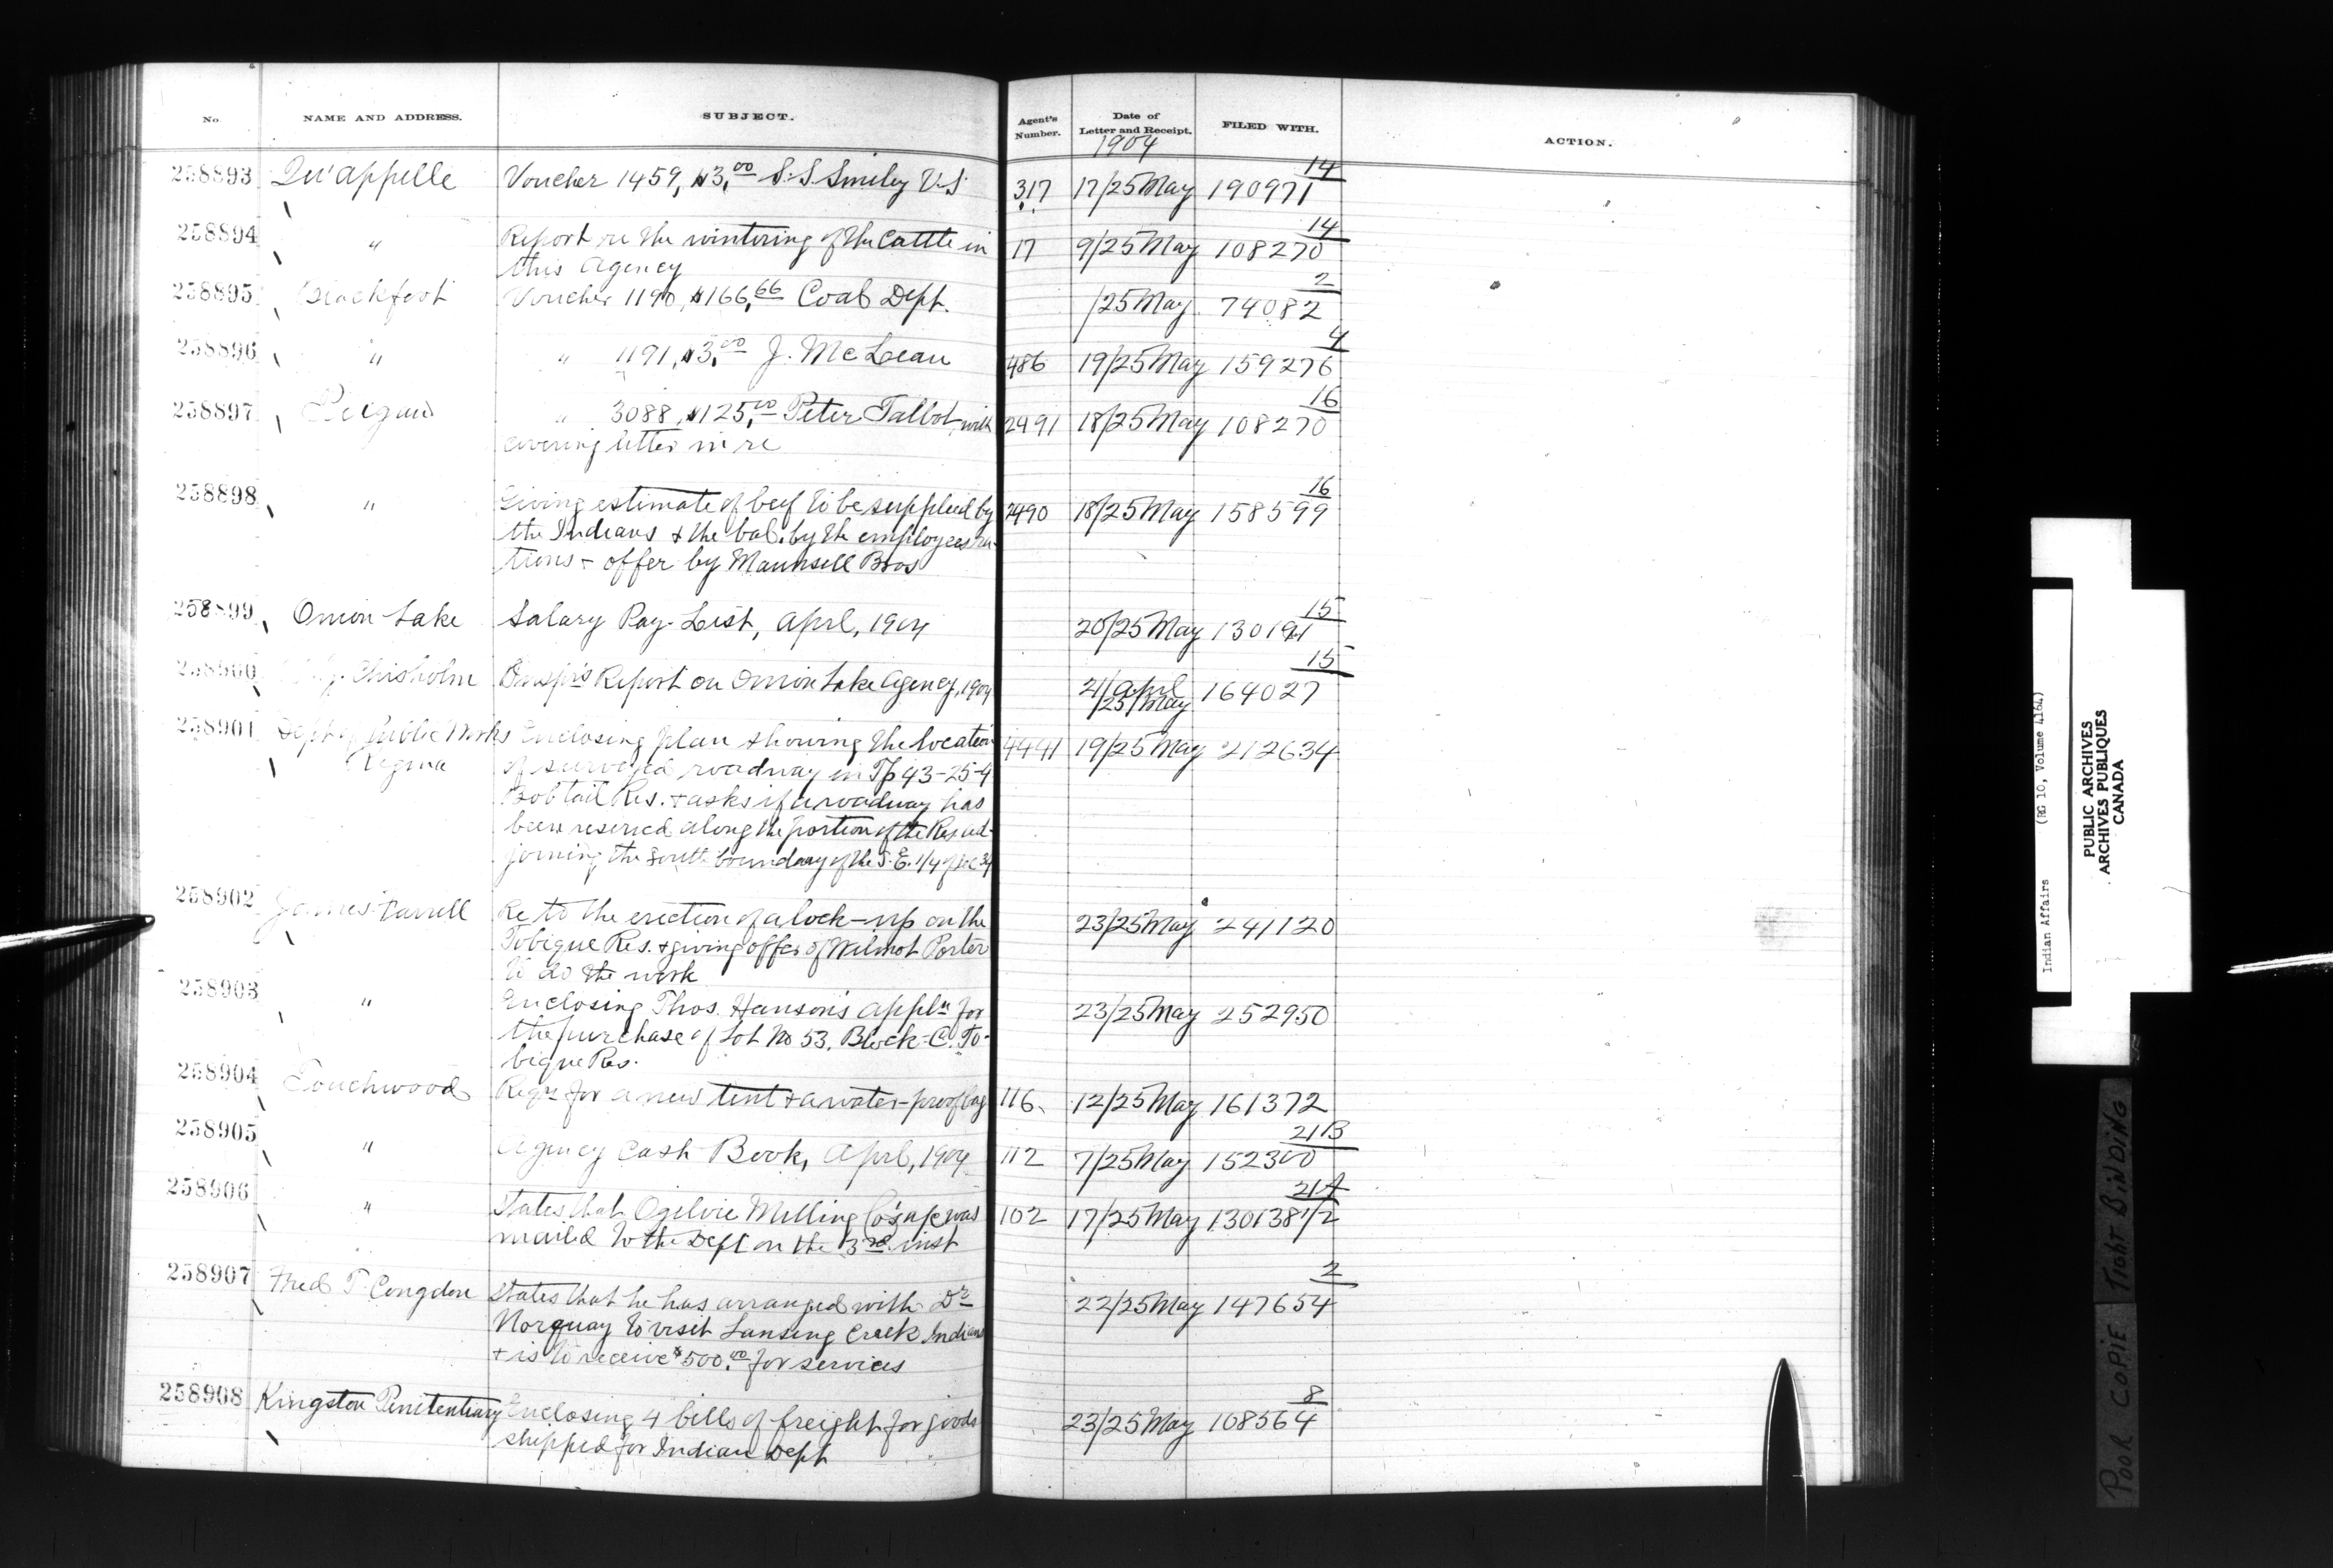 No. NAME AND ADDRESS. SUBJECT. Agent's Number. Date of Letter and Receipt. FILED WITH. ACTION.
1904
258893 Qu'appelle Voucher 1459, $3.00 S.S. Smiley V.S. 317 17/25 May 190971 14
258894 " Report re the wintering of the Cattle in 17 9/25 May 108270 14
this Agency
258895 Blackfoot Voucher 1190, $166.66 Coal Dept. /25 May 74082 2
258896 " " 1191, $3.00 J. McLean 486 19/25 May 159276 4
258897 Peigan " 3088, $125.00 Peter Talbot, with 2491 18/25 May 108270 16
covering letter in re
258898 " Giving estimate of beef to be supplied by 2490 18/25 May 158599 16
the Indians & the bal. by the employees ra-
tions & offer by Maunsell Bros
258899 Onion Lake Salary Pay-List, April, 1904 20/25 May 130191 15
258900 Chisholm Report on Onion Lake Agency, 1904 21/April 164027 15
/25/May
258901 Dept of Public Works Enclosing plan showing the location 4441 19/25 May 212634
Regina of surveyed roadway in Tp 43-25-4
Bobtail Res. & asks if a roadway has
been reserved along the portion of the Res ad-
joining the South boundary of the S.E. 1/4 of Sec 34
258902 James Farrell Re to the erection of a lock-up on the 23/25 May 241120
Tobique Res. & giving offer of Wilmot Porter
to do the work
258903 " Enclosing Thos. Hanson's appln for 23/25 May 252950
the purchase of Lot No 53, Block-C. To-
bique Res.
258904 Touchwood Reqn for a new tent & a water-proof bag 116 12/25 May 161372
258905 " Agency Cash Book, April, 1904 112 7/25 May 152300 21B
258906 " States that Ogilvie Milling Co's a/c was 102 17/25 May 130138 1/2 21A
mailed to the Dept on the 3rd inst
258907 Fred T. Congdon States that he has arranged with Dr 22/25 May 147654 2
Norquay to visit Lansing Creek Indians
& is to receive $500.00 for services
258908 Kingston Penitentiary Enclosing 4 bills of freight for goods 23/25 May 108564 8
shipped for Indian Dept
Indian Affairs (RG 10, Volume 4164)
PUBLIC ARCHIVES
ARCHIVES PUBLIQUES
CANADA
POOR COPIE TIGHT BINDING